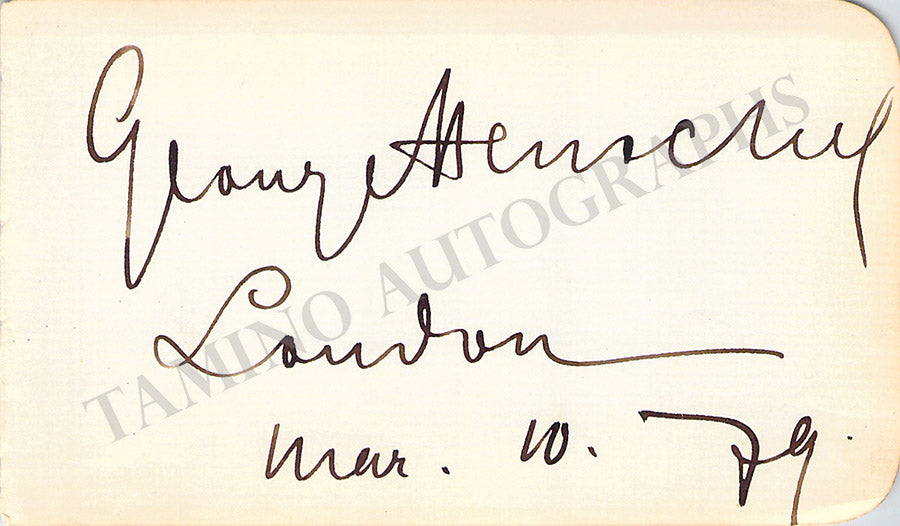 George Henschel
London
Mar. 10. 79.
TAMINO AUTOGRAPHS